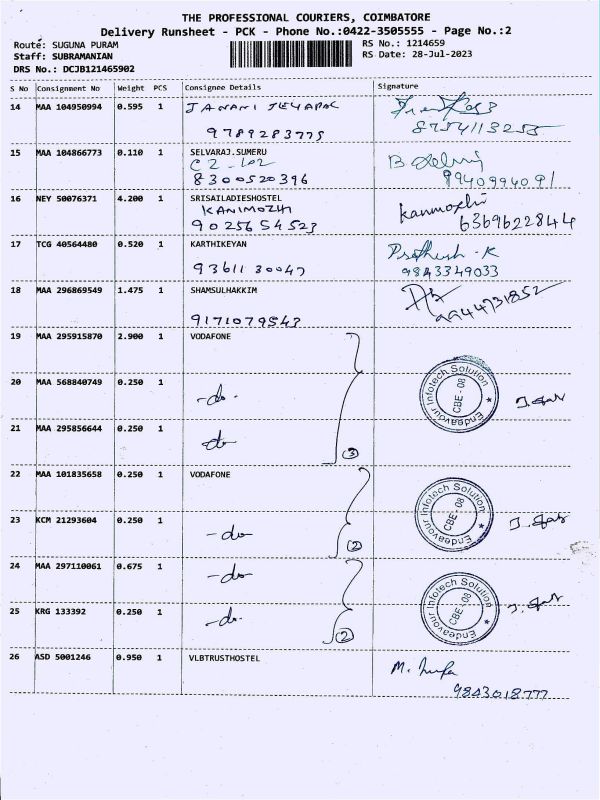 THE PROFESSIONAL COURIERS, COIMBATORE
Delivery Runsheet - PCK - Phone No.:0422-3505555 - Page No.:2
Route: SUGUNA PURAM RS No.: 1214659
Staff: SUBRAMANIAN RS Date: 28-Jul-2023
DRS No.: DCJB121465902
S No Consignment No Weight PCS Consignee Details Signature
14 MAA 104950994 0.595 1 JANANI JEYAPAL
9789283775 8754113255
15 MAA 104866773 0.110 1 SELVARAJ.SUMERU
C2-102
8300520396 9940994091
16 NEY 50076371 4.200 1 SRISAILADIESHOSTEL
KANIMOZHI kanimozhi
9025654523 6369622844
17 TCG 40564480 0.520 1 KARTHIKEYAN
9361130047 9843349033
18 MAA 296869549 1.475 1 SHAMSULHAKKIM
9171079543 9944731852
19 MAA 295915870 2.900 1 VODAFONE
20 MAA 568840749 0.250 1 -do-
Endeavour Infotech Solution
CBE - 08
21 MAA 295856644 0.250 1 do
3
22 MAA 101835658 0.250 1 VODAFONE
Endeavour Infotech Solution
CBE - 08
23 KCM 21293604 0.250 1 -do-
2
24 MAA 297110061 0.675 1 -do-
Endeavour Infotech Solution
CBE-08
25 KRG 133392 0.250 1 -do-
2
26 ASD 5001246 0.950 1 VLBTRUSTHOSTEL
9843018777